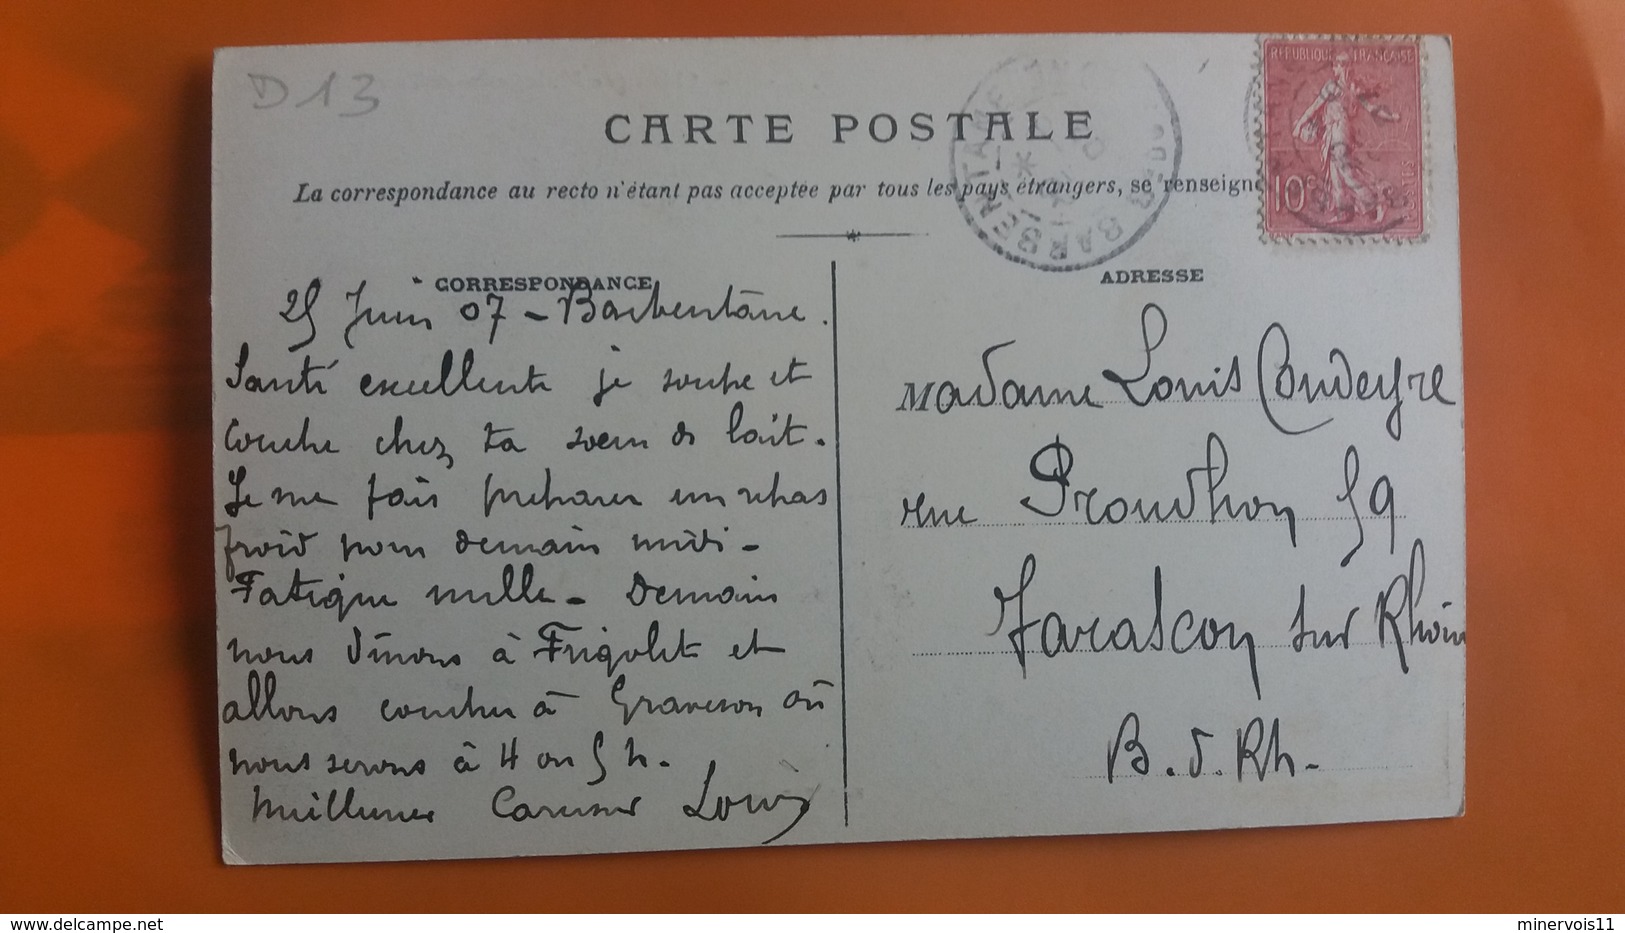 D13
CARTE POSTALE
La correspondance au recto n'étant pas acceptée par tous les pays étrangers, se renseigne
REPUBLIQUE FRANÇAISE
10c POSTES
BARBENTANE
B DU RH
CORRESPONDANCE
25 Juin 07 - Barbentane.
Santé excellente je soupe et
couche chez ta soeur de lait.
Je me fais préparer un repas
froid pour demain midi -
Fatigue nulle - Demain
nous dînons à Frigolet et
allons coucher à Graveson où
nous serons à 4 ou 5 h.
Meilleures Caresses Louis
ADRESSE
Madame Louis Coudeyre
rue Proudhon 59
Tarascon sur Rhône
B. d. Rh.
delcampe.net
minervois11